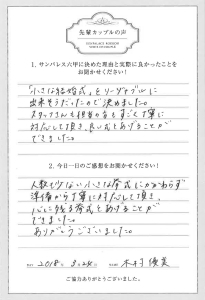 先輩カップルの声
1. サンパレス六甲に決めた理由と実際に良かったことを
お聞かせください！
「小さな結婚式」をリーズナブルに
出来そうだったので決めました。
スタッフさんも担当の方もすごく丁寧に
対応して頂き、良い式をあげることが
できました。
2. 今日一日のご感想をお聞かせください！
人数も少ない小さな挙式にかかわらず
準備から丁寧に対応して頂き、
心に残る挙式をあげることが
できました。
ありがとうございました。
2018年 3.24
木村 優美
ご協力ありがとうございました。